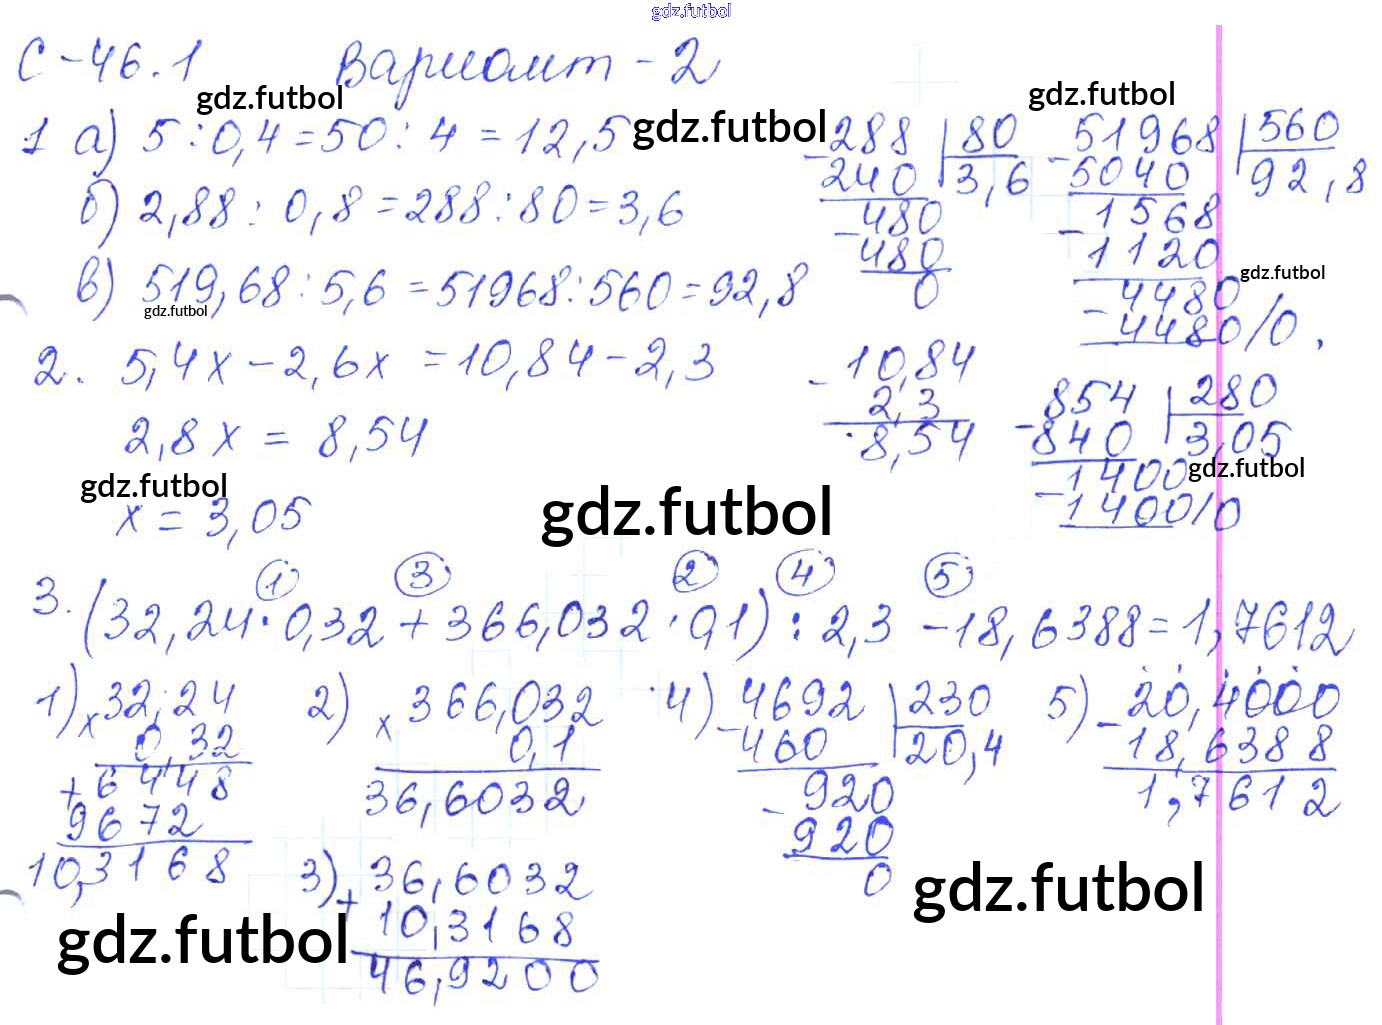 gdz.futbol
С-46.1 Вариант-2
gdz.futbol gdz.futbol gdz.futbol
1 а) 5:0,4=50:4=12,5
б) 2,88:0,8=288:80=3,6
в) 519,68:5,6=51968:560=92,8
gdz.futbol
-288 | 80
240 3,6
-480
480
0
-51968 | 560
5040 92,8
-1568
1120
-4480
4480/0,
gdz.futbol
2. 5,4х-2,6х=10,84-2,3
2,8х=8,54
gdz.futbol
х=3,05
-10,84
2,3
8,54
-854 | 280
840 3,05
-1400
-1400/0
gdz.futbol
gdz.futbol
1 3 2 4 5
3. (32,24·0,32+366,032·0,1):2,3-18,6388=1,7612
1) х32,24
0,32
+6448
9672
10,3168
2) х366,032
0,1
36,6032
3) +36,6032
10,3168
46,9200
4) -4692 | 230
460 20,4
-920
920
0
5) -20,4000
18,6388
1,7612
gdz.futbol
gdz.futbol